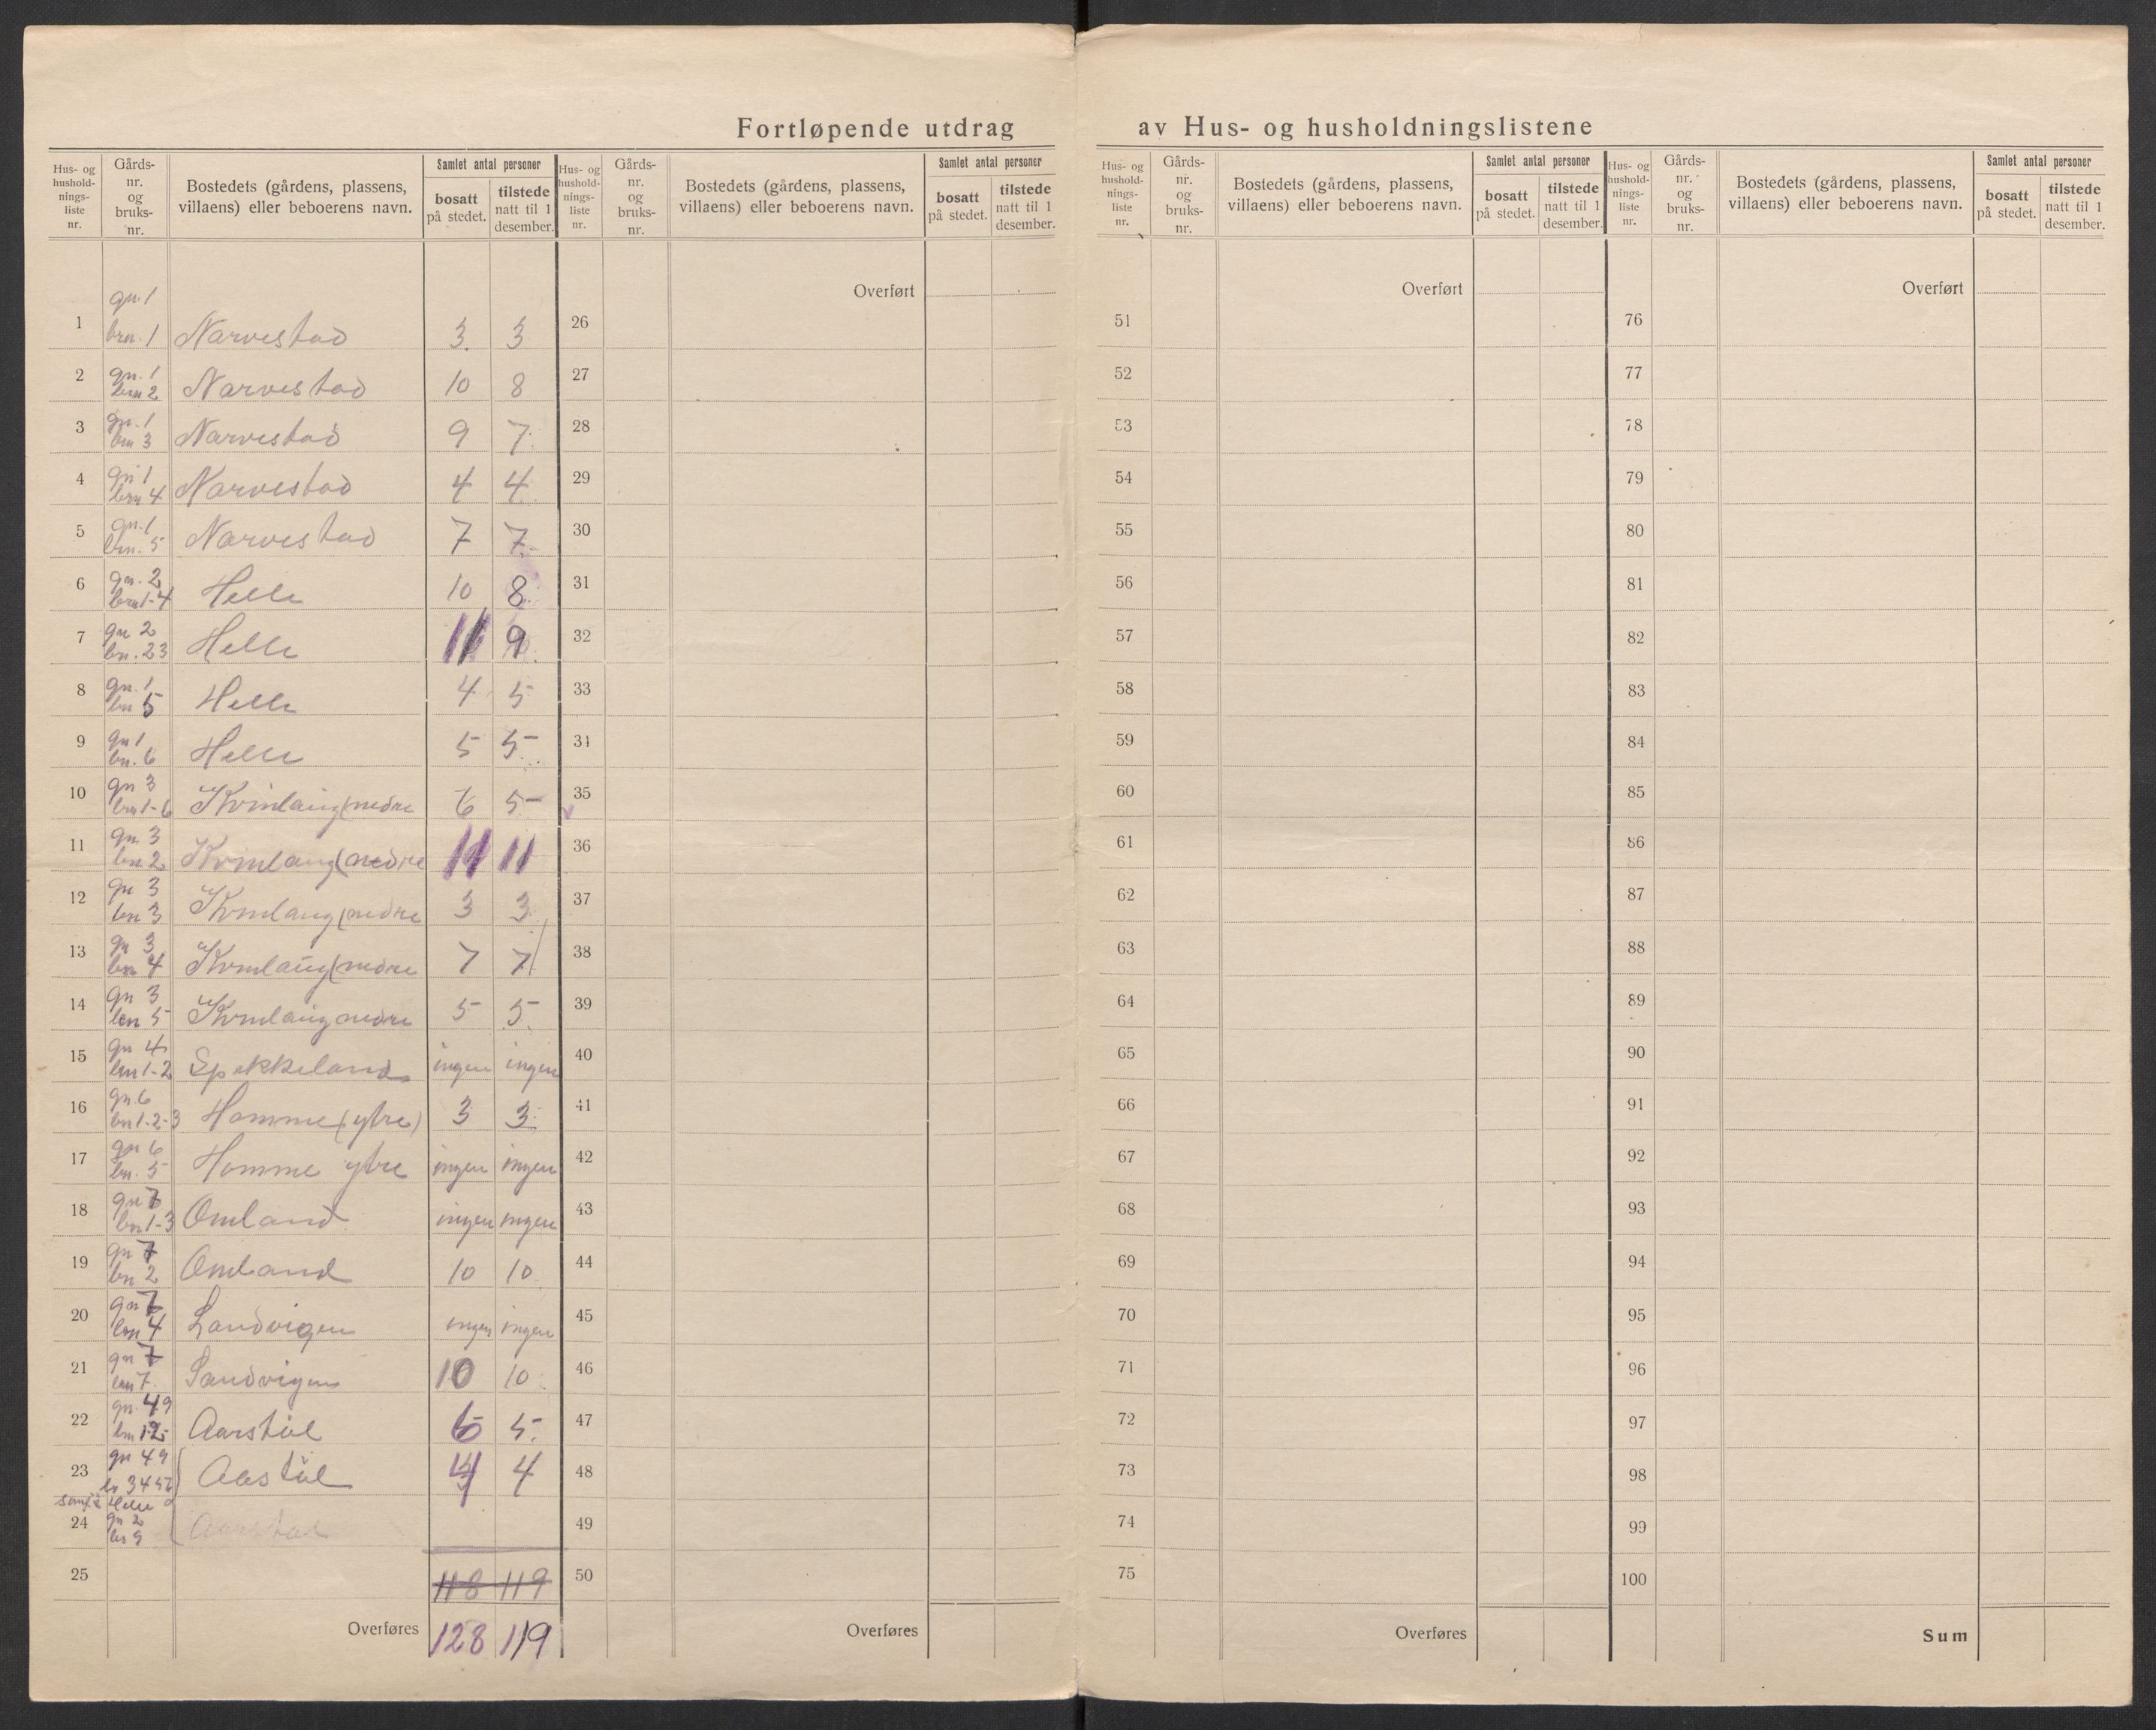 Fortløpende utdrag av Hus- og husholdningslistene
Hus- og hushold- nings- liste nr.
Gårds- nr. og bruks- nr.
Bostedets (gårdens, plassens, villaens) eller beboerens navn.
Samlet antal personer
bosatt på stedet.
tilstede natt til 1 desember.
Hus- og hushold- nings- liste nr.
Gårds- nr. og bruks- nr.
Bostedets (gårdens, plassens, villaens) eller beboerens navn.
Samlet antal personer
bosatt på stedet.
tilstede natt til 1 desember.
1 gn. 1 brn. 1 Narvestad 3 3
2 gn. 1 brn 2 Narvestad 10 8
3 gn. 1 bn 3 Narvestad 9 7
4 gn 1 brn 4 Narvestad 4 4
5 gn. 1 brn. 5 Narvestad 7 7
6 gn. 2 brn 1-4 Helle 10 8
7 gn 2 bn. 23 Helle 11 9
8 gn. 1 bn 5 Helle 4 5
9 gn 1 bn. 6 Helle 5 5
10 gn 3 brn 1-6 Kvinlaug (nedre 6 5
11 gn. 3 bn 2 Kvinlaug (nedre 11 11
12 gn 3 bn 3 Kvinlaug (nedre 3 3
13 gn 3 brn 4 Kvinlaug (nedre 7 7
14 gn 3 brn 5 Kvinlaug nedre 5 5
15 gn 4 brn 1-2 Spekkeland ingen ingen
16 gn 6 bn 1-2-3 Homme (ytre) 3 3
17 gn 6 bn. 5 Homme ytre ingen ingen
18 gn 7 bn 1-3 Omland ingen ingen
19 gn 7 bn 2 Omland 10 10
20 gn 7 brn 4 Sandvigen ingen ingen
21 gn 7 brn 7 Sandvigen 10 10
22 gn. 49 brn 12 Aarstøl 6 5
23 gn 49 Aastøl 4 4
24 Helle gn 2 bn 9 Aarstøl
25 118 119
Overføres 128 119
Overført
26
27
28
29
30
31
32
33
34
35
36
37
38
39
40
41
42
43
44
45
46
47
48
49
50
Overføres
Hus- og hushold- nings- liste nr.
Gårds- nr. og bruks- nr.
Bostedets (gårdens, plassens, villaens) eller beboerens navn.
Samlet antal personer
bosatt på stedet.
tilstede natt til 1 desember.
Overført
51
52
53
54
55
56
57
58
59
60
61
62
63
64
65
66
67
68
69
70
71
72
73
74
75
Overføres
Hus- og hushold- nings- liste nr.
Gårds- nr. og bruks- nr.
Bostedets (gårdens, plassens, villaens) eller beboerens navn.
Samlet antal personer
bosatt på stedet.
tilstede natt til 1 desember.
Overført
76
77
78
79
80
81
82
83
84
85
86
87
88
89
90
91
92
93
94
95
96
97
98
99
100
Sum